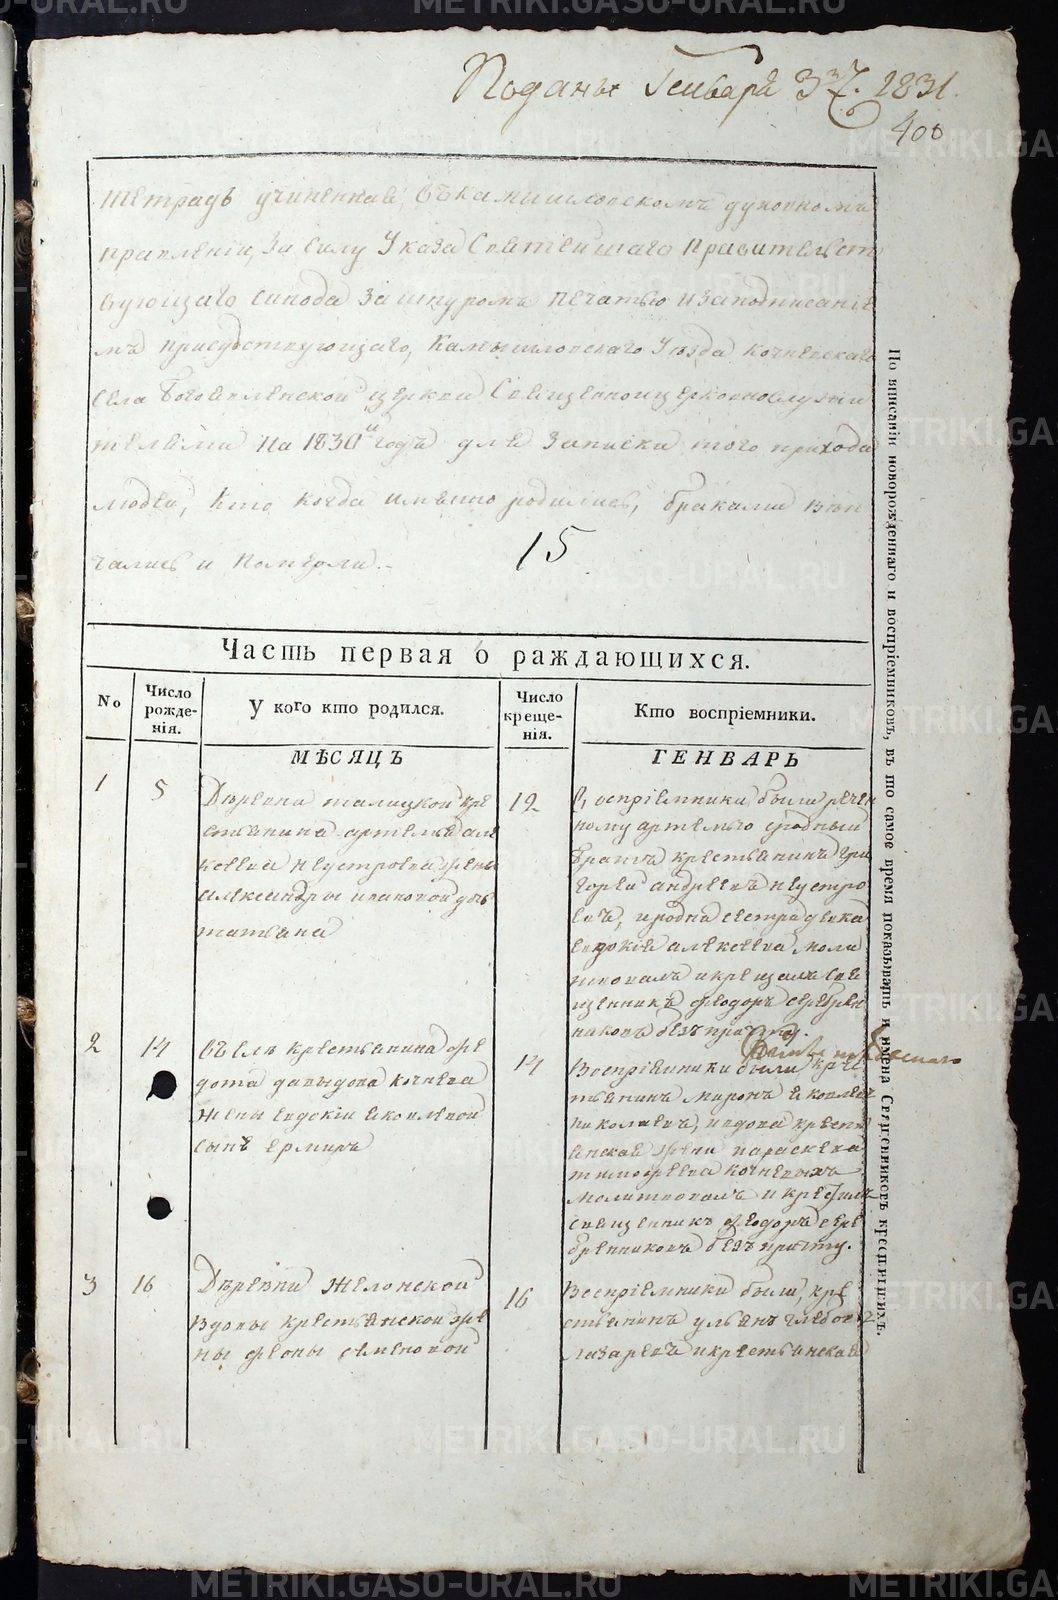 Поданы Генваря 1831.
400
Тетрадь учиненная, въ Камышловскомъ духовномъ
правленіи, за силу Указа Святейшаго Правительст
вующаго синода за шнуромъ печатью и заподписаніе
мъ присудствующаго, Камышловскаго Уезда, кочневскаго
села Богоявленской церкви Священноцерковнослужи
телями на 1830й годъ для записки того прихода
людей, кто, когда имянно родились, браками вен
чались и померли.-
15
Часть первая о раждающихся.
№
Число рожде-
нія.
У кого кто родился.
Число
креще-
нія.
Кто воспріемники.
МѢСЯЦЪ
ГЕНВАРЬ
1
5
Деревни талицкой кре
стьянина артемья але
ксеева неустроева жены
александры ивановой дочь
татьяна
12
Воспріемники были речен
ному артемью сродный
братъ крестьянинъ гри
горей андреевъ неустро
евъ, и родна сестра девка
евдокия алексеева, моли
твовалъ и крещалъ свя
щенникъ феодоръ серебрен
никовъ безъ причту.
2
14
Въ селе крестьянина фе
дота давыдова кочнева
жены евдокіи яковлевой
сынъ ермилъ
14
Воспріемники были кре
стьянинъ миронъ яковлевъ
николаевъ, вдова крестья
нская жена параскева
тимофеева кочневыхъ
молитвовалъ и крестилъ
священникъ феодоръ сере
бренниковъ безъ причту.
3
16
Деревни Желонской
вдовы крестьянской же
ны февоны семеновой
16
Воспріемники были, кре
стьянинъ ульянъ глебовъ
лазаревъ и крестьянская
По вписаніи новорожденнаго и воспріемниковъ, въ то самое время показывать и имена Священниковъ крестившихъ.
METRIKI.GASO-URAL.RU